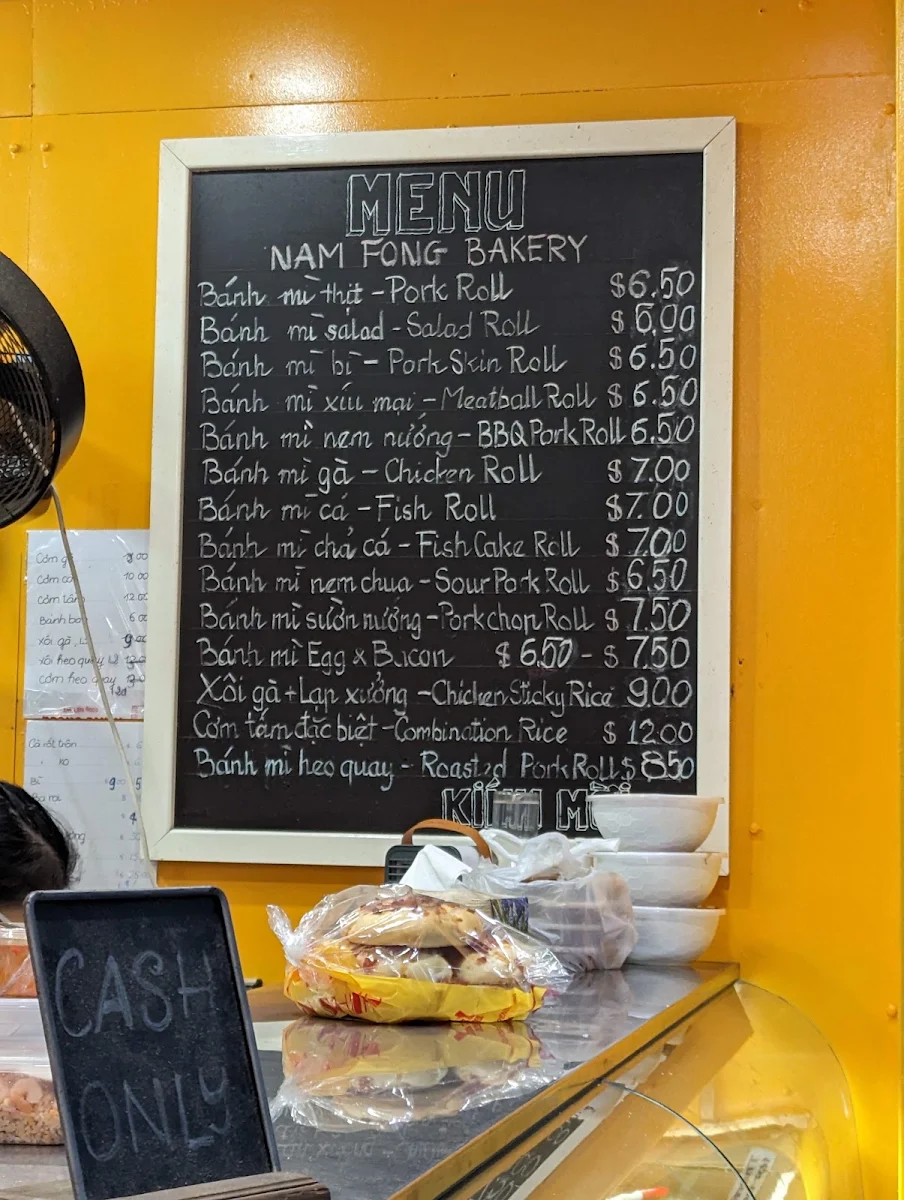 MENU
NAM FONG BAKERY
Bánh mì thịt - Pork Roll $6.50
Bánh mì salad - Salad Roll $6.00
Bánh mì bì - Pork Skin Roll $6.50
Bánh mì xíu mại - Meatball Roll $6.50
Bánh mì nem nướng - BBQ Pork Roll 6.50
Bánh mì gà - Chicken Roll $7.00
Bánh mì cá - Fish Roll $7.00
Bánh mì chả cá - Fish Cake Roll $7.00
Bánh mì nem chua - Sour Pork Roll $6.50
Bánh mì sườn nướng - Porkchop Roll $7.50
Bánh mì Egg & Bacon $6.50 - $7.50
Xôi gà + Lạp xưởng - Chicken Sticky Rice 9.00
Cơm tấm đặc biệt - Combination Rice $12.00
Bánh mì heo quay - Roasted Pork Roll $8.50
KÍNH MỜI
Cơm
Cơm 10.00
Cơm tấm 12.00
Bánh 6.00
Xôi gà
Xôi heo quay
Cơm heo quay
Cà xốt trôn
Bì
CASH
ONLY